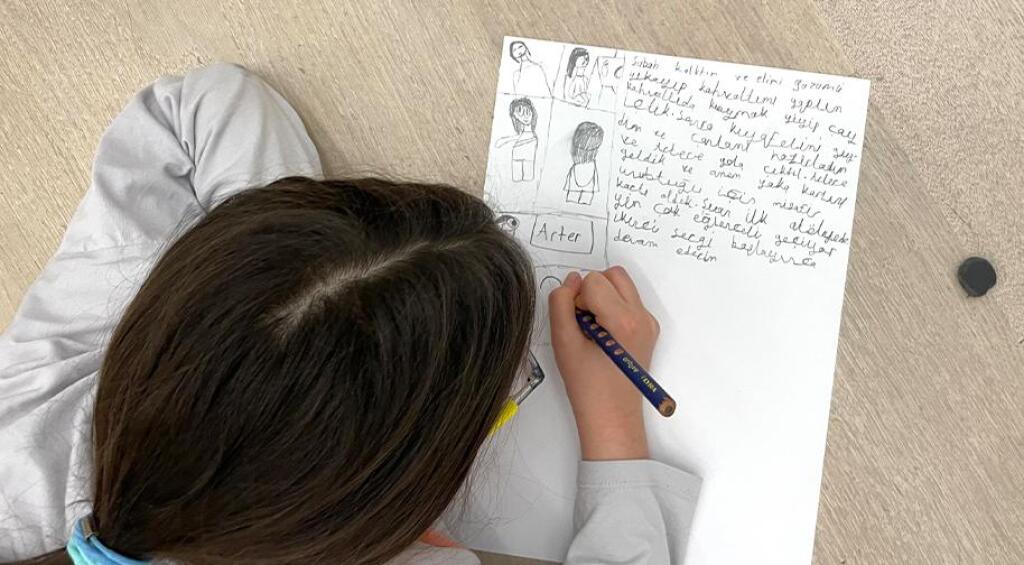 Sabah kalktım ve elimi yüzümü
yıkayıp kahvaltımı yaptım
kahvaltıda kaymak yiyip çay
içtik. Sonra kıyafetimi giy-
dim ve çantamı hazırladım
ve Arter'e yola çıktık. Arter'e
geldik ve annem yaka kartımı
unuttuğu için misafir
kartı aldık. Şuan ilk atölyede-
yim çok eğlenceli geçiyor
ikinci başlayınca
devam ederim
Arter